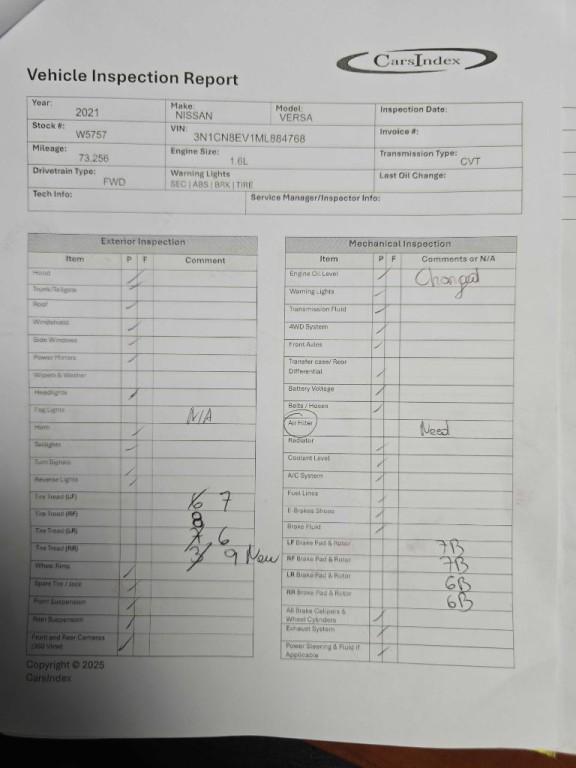 CarsIndex
Vehicle Inspection Report
Year: 2021 Make: NISSAN Model: VERSA Inspection Date:
Stock #: W5757 VIN: 3N1CN8EV1ML884768 Invoice #:
Mileage: 73,256 Engine Size: 1.6L Transmission Type: CVT
Drivetrain Type: FWD Warning Lights SEC | ABS | BRK | TIRE Last Oil Change:
Tech Info: Service Manager/Inspector Info:
Exterior Inspection
Item P F Comment
Hood
Trunk/Tailgate
Roof
Windshield
Side Windows
Power Mirrors
Wipers & Washer
Headlights
Fog Lights N/A
Horn
Taillights
Turn Signals
Reverse Lights
Tire Tread (LF) 6 7
Tire Tread (RF) 8
Tire Tread (LR) 7 6
Tire Tread (RR) 3 9 New
Wheel Rims
Spare Tire / Jack
Front Suspension
Rear Suspension
Front and Rear Cameras
(360 View)
Copyright © 2025
CarsIndex
Mechanical Inspection
Item P F Comments or N/A
Engine Oil Level Changed
Warning Lights
Transmission Fluid
4WD System
Front Axles
Transfer case/ Rear
Differential
Battery Voltage
Belts / Hoses
Air Filter Need
Radiator
Coolant Level
A/C System
Fuel Lines
E-Brakes Shoes
Brake Fluid
LF Brake Pad & Rotor 7B
RF Brake Pad & Rotor 7B
LR Brake Pad & Rotor 6B
RR Brake Pad & Rotor 6B
All Brake Calipers &
Wheel Cylinders
Exhaust System
Power Steering & Fluid if
Applicable